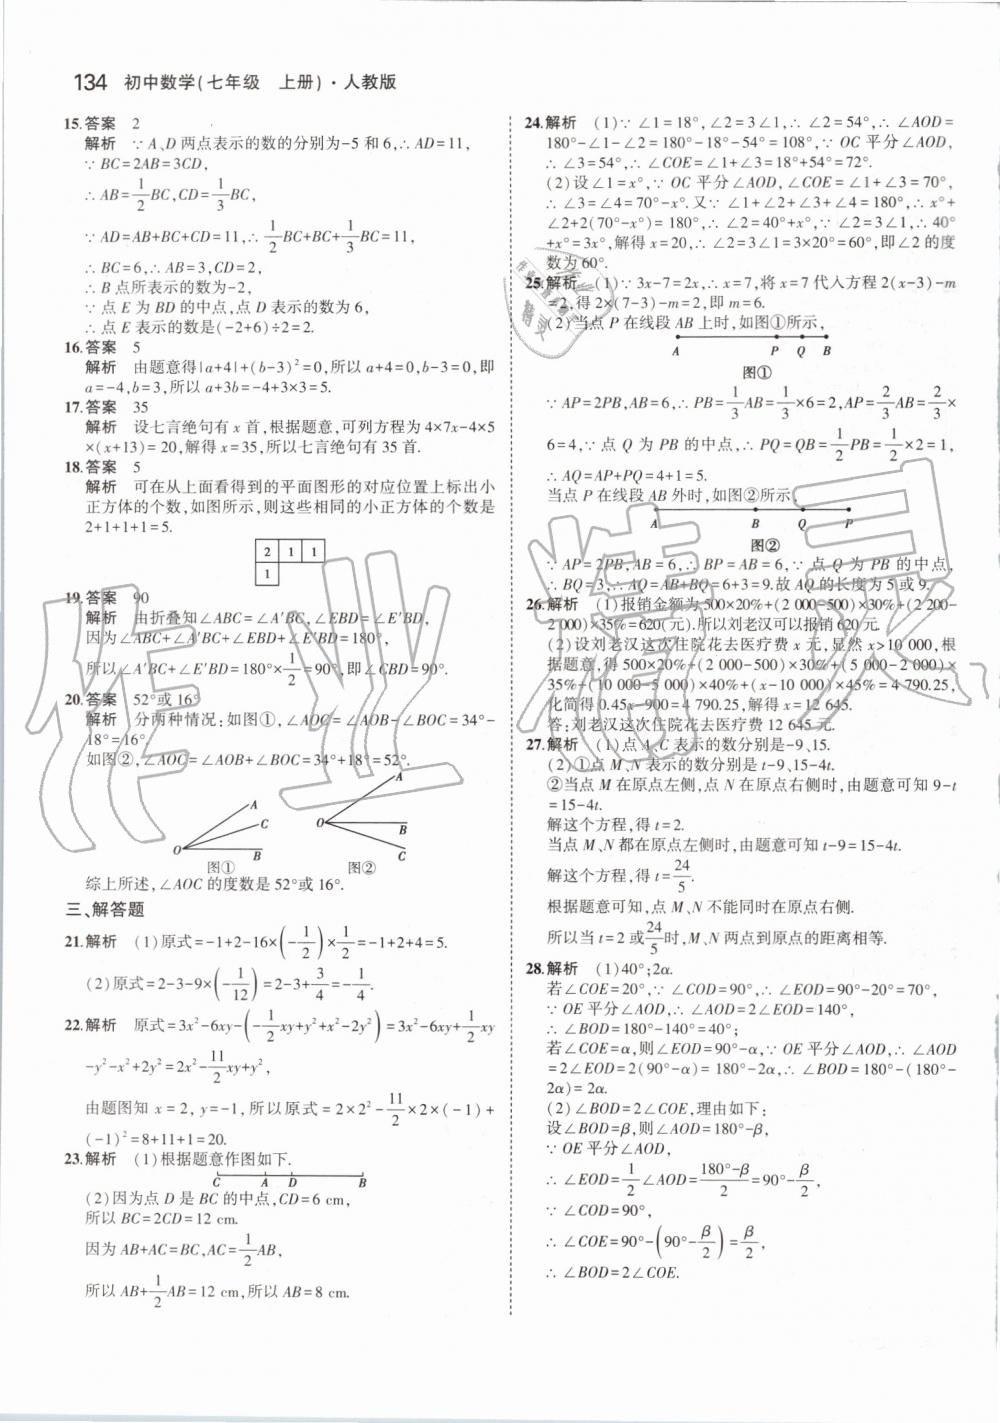 134 初中数学(七年级 上册)·人教版
15.答案 2
解析 ∵A、D两点表示的数的分别为-5和6,∴AD=11,
∵BC=2AB=3CD,
∴AB=1/2BC,CD=1/3BC,
∵AD=AB+BC+CD=11,∴1/2BC+BC+1/3BC=11,
∴BC=6,∴AB=3,CD=2,
∴B点所表示的数为-2,
∵点E为BD的中点,点D表示的数为6,
∴点E表示的数是(-2+6)÷2=2.
16.答案 5
解析 由题意得|a+4|+(b-3)²=0,所以a+4=0,b-3=0,即
a=-4,b=3,所以a+3b=-4+3×3=5.
17.答案 35
解析 设七言绝句有x首,根据题意,可列方程为4×7x-4×5
×(x+13)=20,解得x=35,所以七言绝句有35首.
18.答案 5
解析 可在从上面看得到的平面图形的对应位置上标出小
正方体的个数,如图所示,则这些相同的小正方体的个数是
2+1+1+1=5.
2 1 1
1
19.答案 90
解析 由折叠知∠ABC=∠A′BC,∠EBD=∠E′BD,
因为∠ABC+∠A′BC+∠EBD+∠E′BD=180°,
所以∠A′BC+∠E′BD=180°×1/2=90°,即∠CBD=90°.
20.答案 52°或16°
解析 分两种情况:如图①,∠AOC=∠AOB-∠BOC=34°-
18°=16°.
如图②,∠AOC=∠AOB+∠BOC=34°+18°=52°.
A C O B 图①
A O B C 图②
综上所述,∠AOC的度数是52°或16°.
三、解答题
21.解析 (1)原式=-1+2-16×(-1/2)×1/2=-1+2+4=5.
(2)原式=2-3-9×(-1/12)=2-3+3/4=-1/4.
22.解析 原式=3x²-6xy-(-1/2xy+y²+x²-2y²)=3x²-6xy+1/2xy
-y²-x²+2y²=2x²-11/2xy+y²,
由题图知x=2,y=-1,所以原式=2×2²-11/2×2×(-1)+
(-1)²=8+11+1=20.
23.解析 (1)根据题意作图如下.
C A D B
(2)因为点D是BC的中点,CD=6 cm,
所以BC=2CD=12 cm.
因为AB+AC=BC,AC=1/2AB,
所以AB+1/2AB=12 cm,所以AB=8 cm.
24.解析 (1)∵∠1=18°,∠2=3∠1,∴∠2=54°,∴∠AOD=
180°-∠1-∠2=180°-18°-54°=108°,∵OC平分∠AOD,
∴∠3=54°,∴∠COE=∠1+∠3=18°+54°=72°.
(2)设∠1=x°,∵OC平分∠AOD,∠COE=∠1+∠3=70°,
∴∠3=∠4=70°-x°.又∵∠1+∠2+∠3+∠4=180°,∴x°+
∠2+2(70°-x°)=180°,∴∠2=40°+x°,∵∠2=3∠1,∴40°
+x°=3x°,解得x=20,∴∠2=3∠1=3×20°=60°,即∠2的度
数为60°.
25.解析 (1)∵3x-7=2x,∴x=7,将x=7代入方程2(x-3)-m
=2,得2×(7-3)-m=2,即m=6.
(2)当点P在线段AB上时,如图①所示,
A P Q B
图①
∵AP=2PB,AB=6,∴PB=1/3AB=1/3×6=2,AP=2/3AB=2/3×
6=4,∵点Q为PB的中点,∴PQ=QB=1/2PB=1/2×2=1,
∴AQ=AP+PQ=4+1=5.
当点P在线段AB外时,如图②所示,
A B Q P
图②
∵AP=2PB,AB=6,∴BP=AB=6,∵点Q为PB的中点,
∴BQ=3,∴AQ=AB+BQ=6+3=9.故AQ的长度为5或9.
26.解析 (1)报销金额为500×20%+(2 000-500)×30%+(2 200-
2 000)×35%=620(元).所以刘老汉可以报销620元.
(2)设刘老汉这次住院花去医疗费x元,显然x>10 000,根
据题意,得500×20%+(2 000-500)×30%+(5 000-2 000)×
35%+(10 000-5 000)×40%+(x-10 000)×45%=4 790.25,
化简得0.45x-900=4 790.25,解得x=12 645.
答:刘老汉这次住院花去医疗费12 645元.
27.解析 (1)点A、C表示的数分别是-9、15.
(2)①点M、N表示的数分别是t-9、15-4t.
②当点M在原点左侧,点N在原点右侧时,由题意可知9-t
=15-4t.
解这个方程,得t=2.
当点M、N都在原点左侧时,由题意可知t-9=15-4t.
解这个方程,得t=24/5.
根据题意可知,点M、N不能同时在原点右侧.
所以当t=2或24/5时,M、N两点到原点的距离相等.
28.解析 (1)40°;2α.
若∠COE=20°,∵∠COD=90°,∴∠EOD=90°-20°=70°,
∵OE平分∠AOD,∴∠AOD=2∠EOD=140°,
∴∠BOD=180°-140°=40°;
若∠COE=α,则∠EOD=90°-α,∵OE平分∠AOD,∴∠AOD
=2∠EOD=2(90°-α)=180°-2α,∴∠BOD=180°-(180°-
2α)=2α.
(2)∠BOD=2∠COE,理由如下:
设∠BOD=β,则∠AOD=180°-β,
∵OE平分∠AOD,
∴∠EOD=1/2∠AOD=(180°-β)/2=90°-β/2,
∵∠COD=90°,
∴∠COE=90°-(90°-β/2)=β/2,
∴∠BOD=2∠COE.
作业精灵